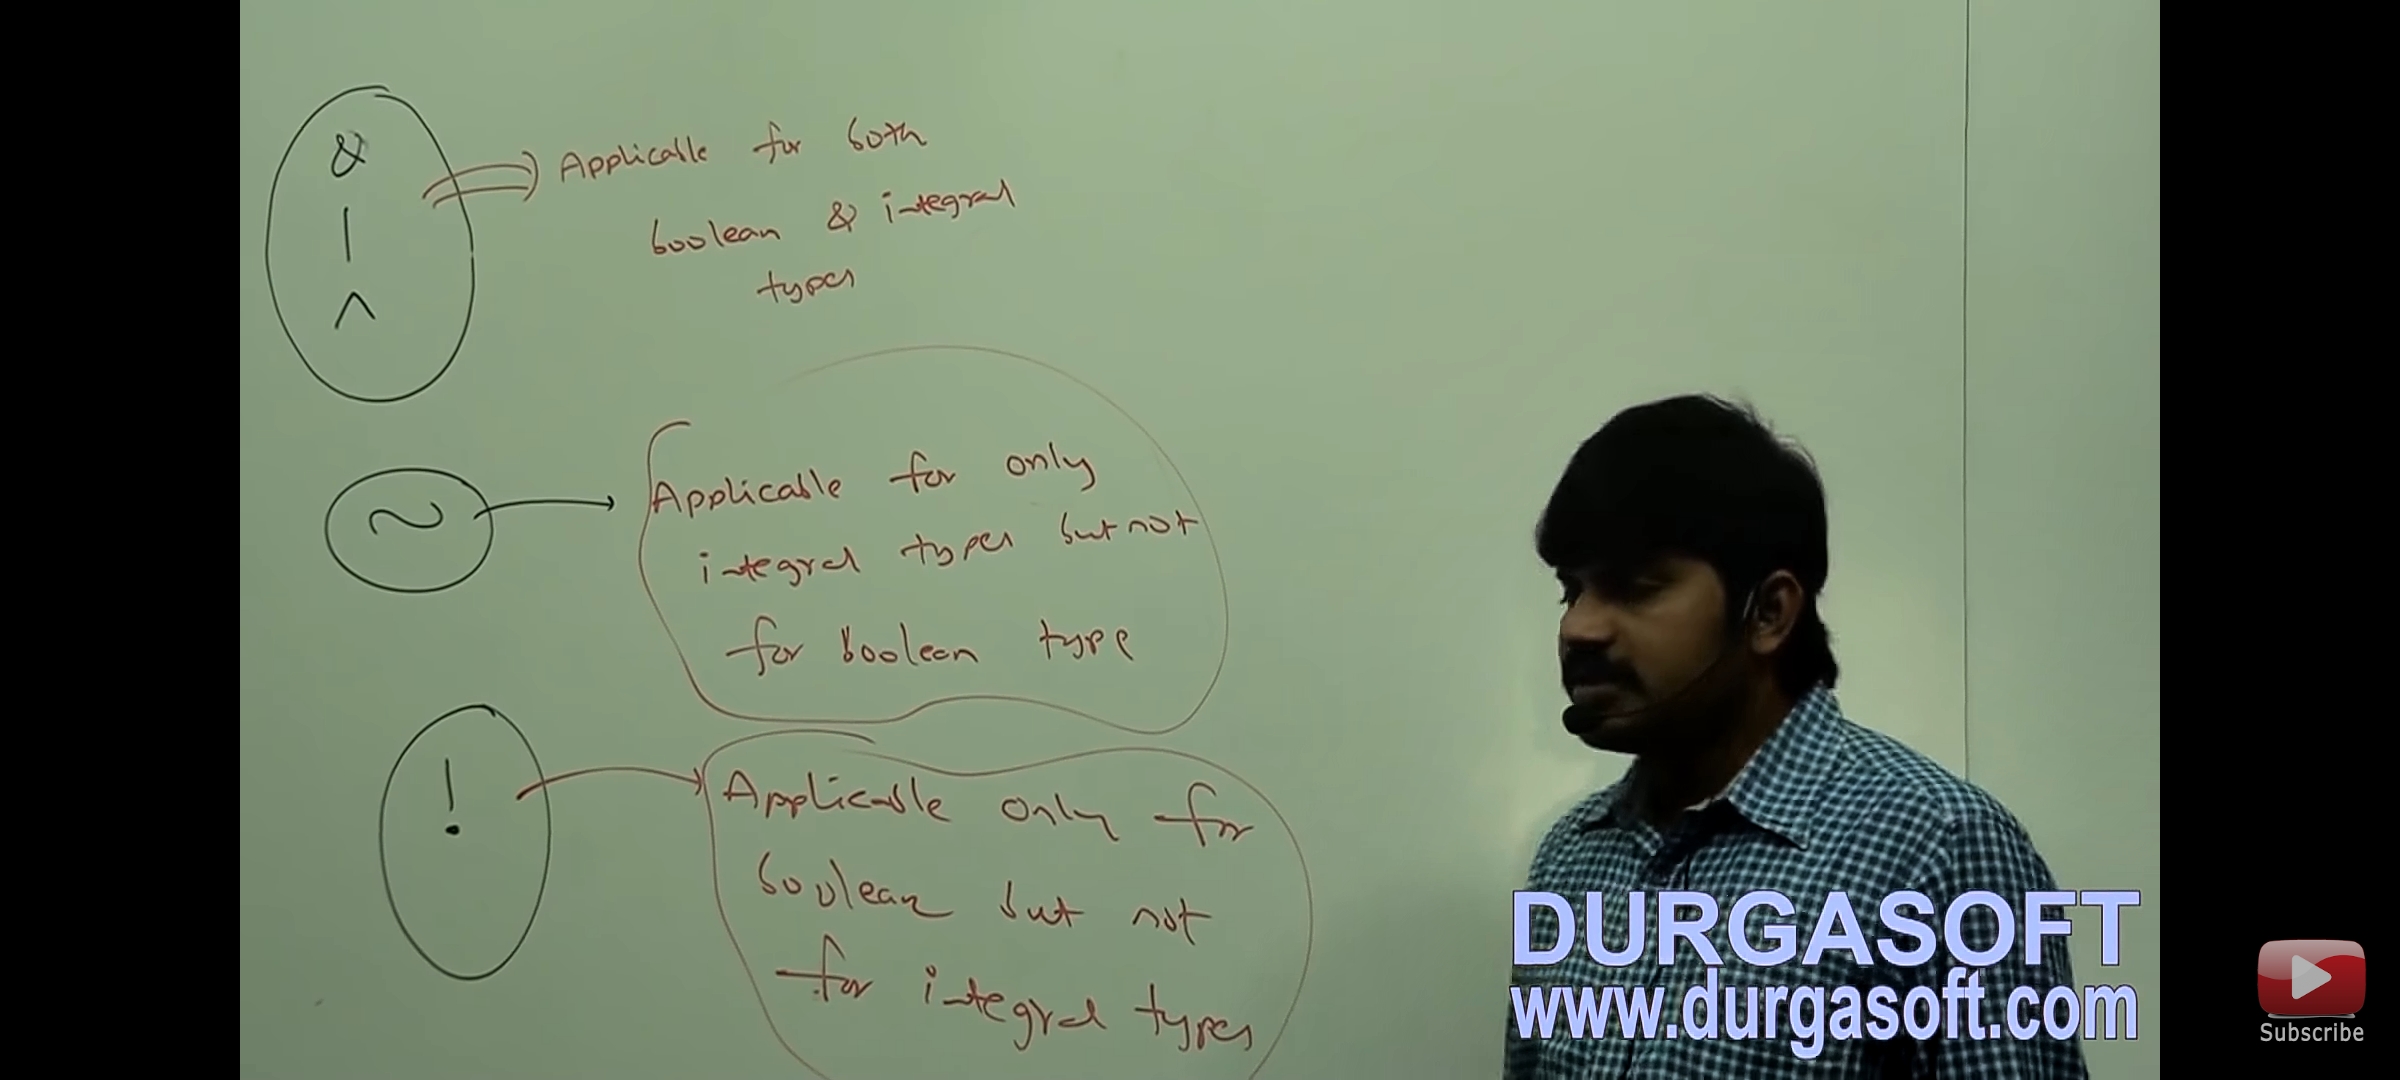 &
|
^
Applicable for both
boolean & integral
types
~
Applicable for only
integral types but not
for boolean type
!
Applicable only for
boolean but not
for integral types
DURGASOFT
www.durgasoft.com
Subscribe